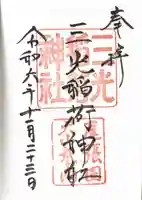 奉拝
三光稲荷神社
三光稲荷神社
令和六年十一月二十三日